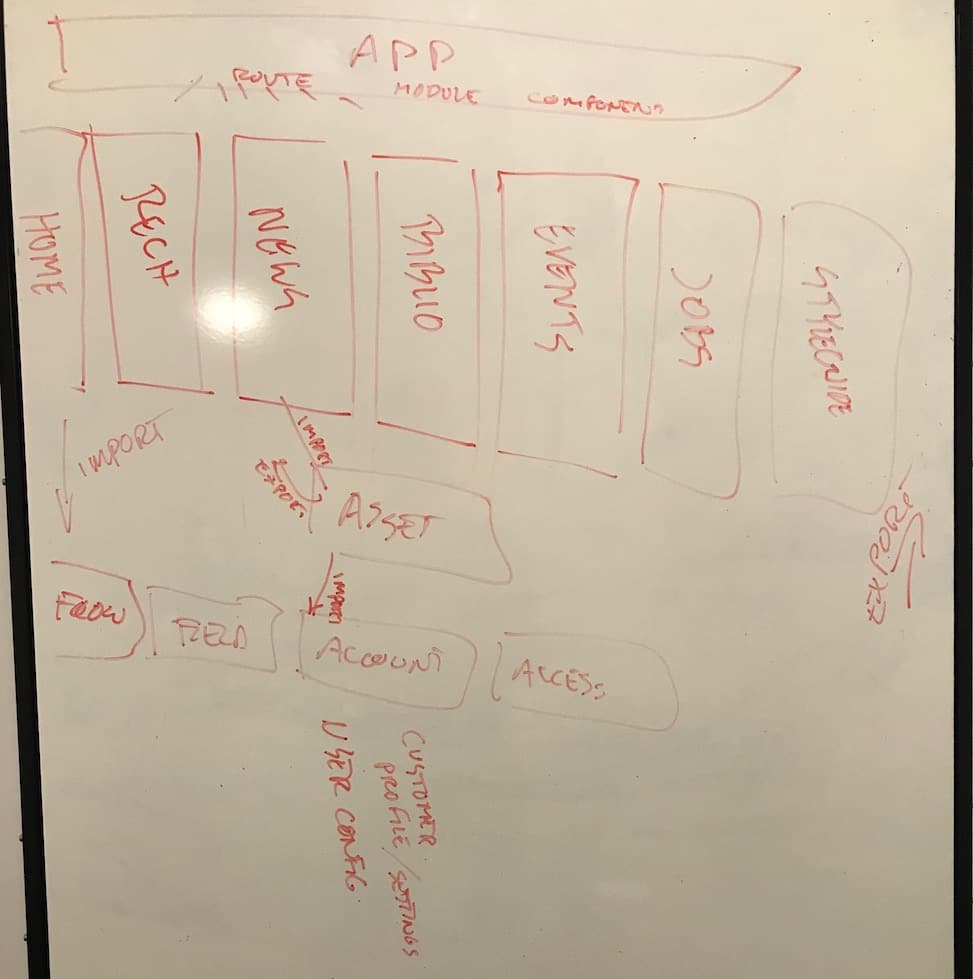 APP
ROUTE MODULE COMPONENT
HOME
RECH
NEWS
BIBLIO
EVENTS
JOBS
STYLEGUIDE
IMPORT
IMPORT
EXPORT
EXPORT
ASSET
IMPORT
FIELD
ACCOUNT
ACCESS
USER CONFIG
CUSTOMER
PROFILE/SETTINGS